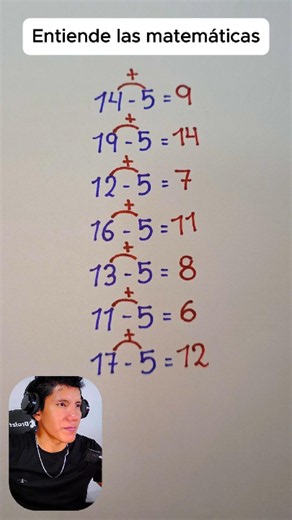 Entiende las matemáticas
+
14 - 5 = 9
+
19 - 5 = 14
+
12 - 5 = 7
+
16 - 5 = 11
+
13 - 5 = 8
+
11 - 5 = 6
+
17 - 5 = 12